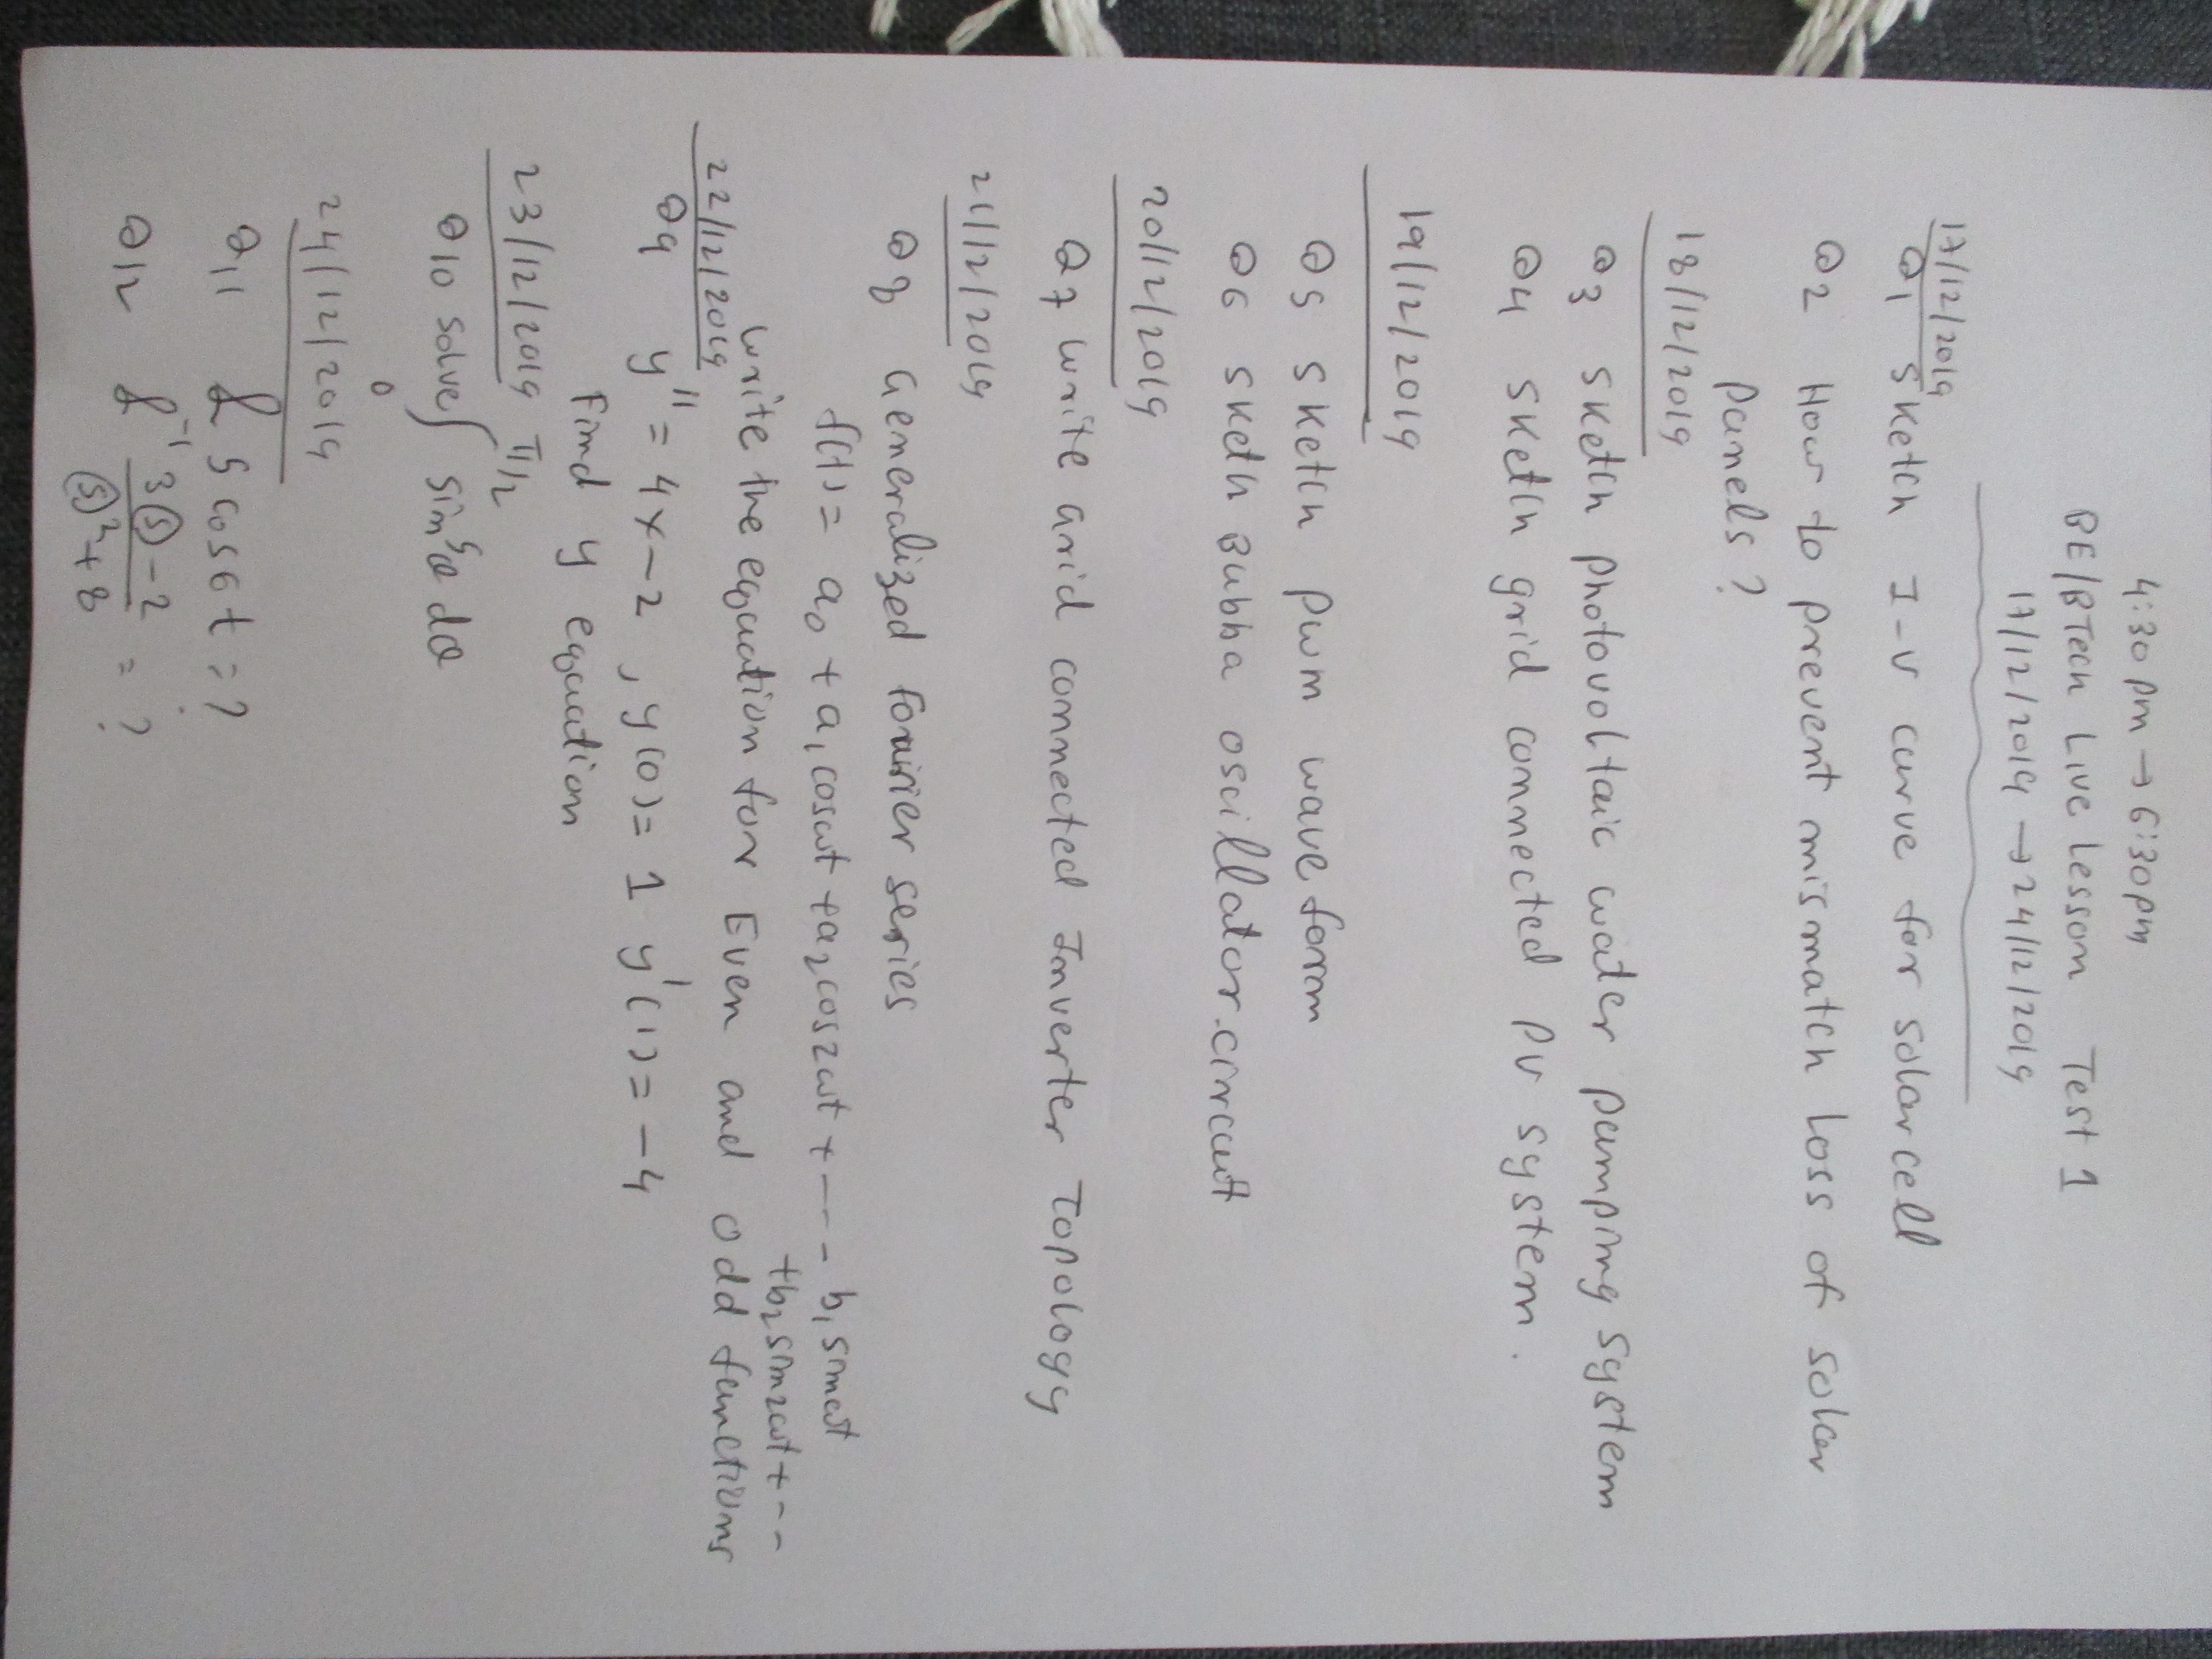 4:30 pm → 6:30pm
BE/BTech Live Lesson Test 1
17/12/2019 → 24/12/2019
17/12/2019
Q1 Sketch I-V curve for solar cell
Q2 How to prevent mismatch loss of solar
panels?
18/12/2019
Q3 Sketch photovoltaic water pumping system
Q4 Sketch grid connected PV system.
19/12/2019
Q5 Sketch PWM wave form
Q6 Sketh Bubba oscillator circuit
20/12/2019
Q7 Write grid connected Inverter Topology
21/12/2019
Q8 Generalized Fourier series
f(t) = a₀ + a₁cosωt + a₂cos2ωt + ---- b₁sinωt
+b₂sin2ωt + ---
Write the equation for Even and odd functions
22/12/2019
Q9 y" = 4x-2, y(0) = 1 y'(1) = -4
Find y equation
23/12/2019
Q10 solve ∫₀^(π/2) sin⁵θ dθ
24/12/2019
Q11 ℒ 5 cos6t = ?
Q12 ℒ⁻¹ (3(s)-2)/((s)²+8) = ?